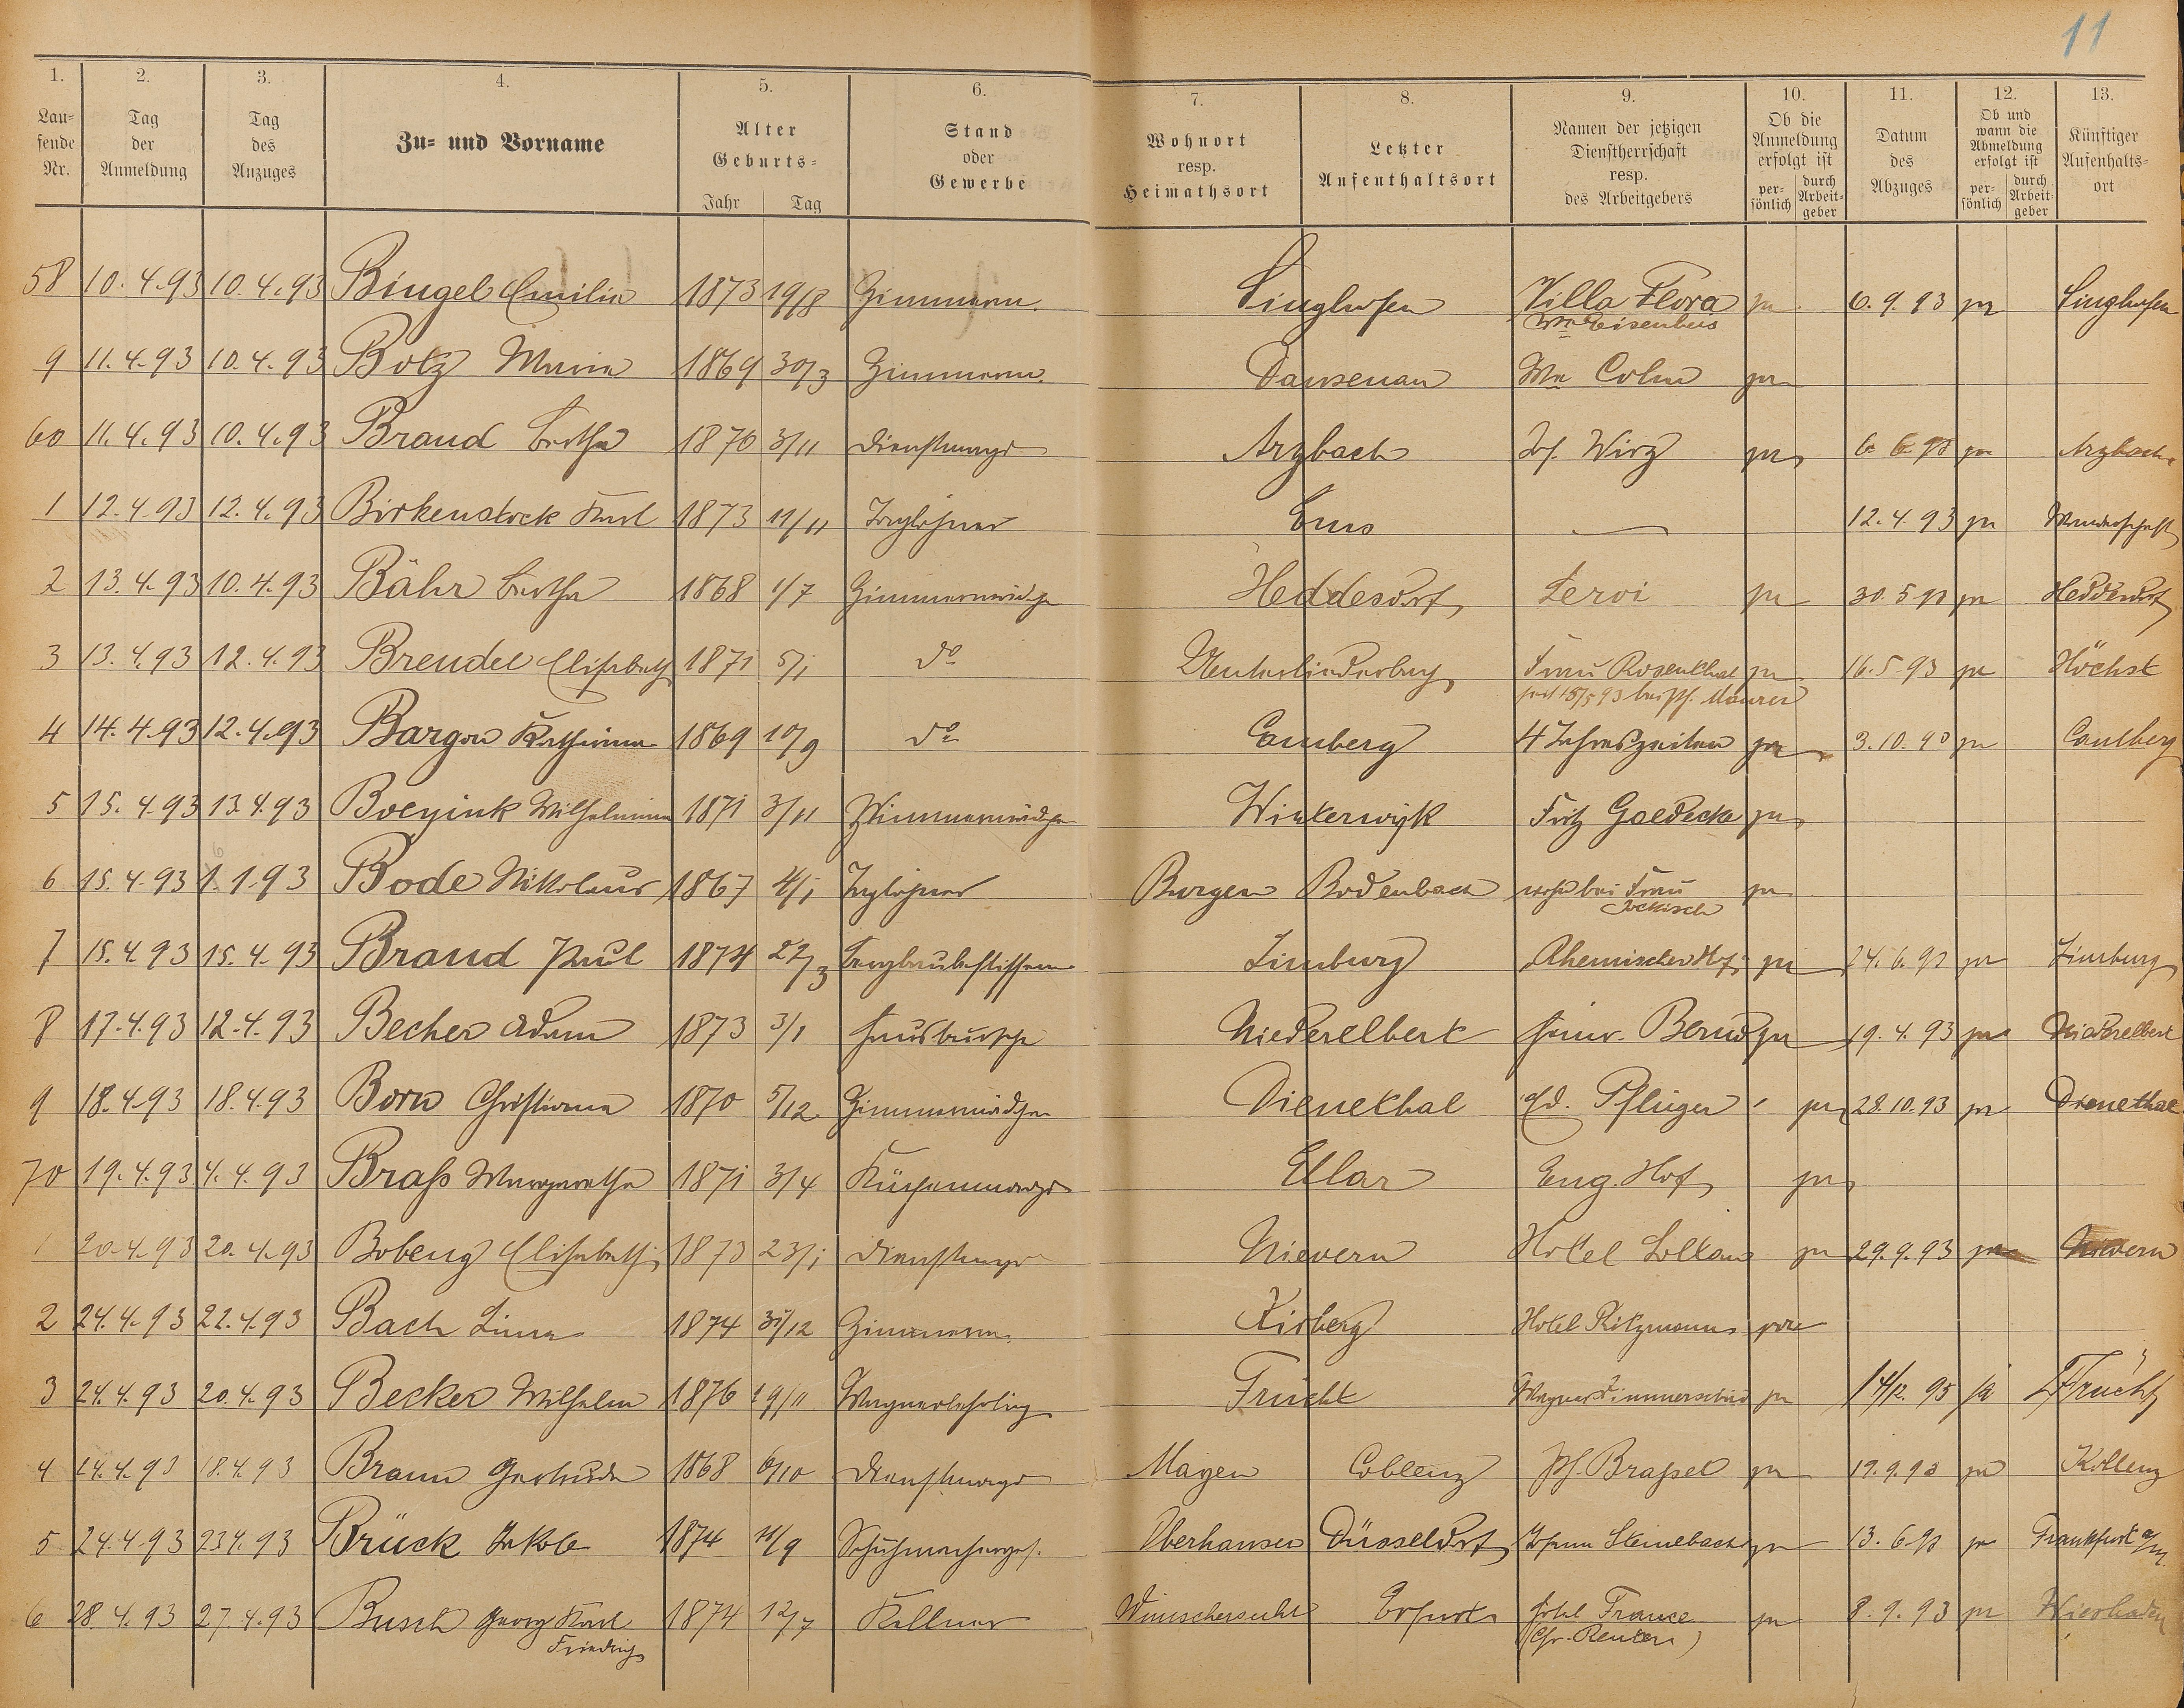 11
1. 2. 3. 4. 5. 6. 7. 8. 9. 10. 11. 12. 13.
Laufende Nr. Tag der Anmeldung Tag des Anzuges Zu- und Vorname Alter Geburts- Jahr Tag Stand oder Gewerbe Wohnort resp. Heimathsort Letzter Aufenthaltsort Namen der jetzigen Dienstherrschaft resp. des Arbeitgebers Ob die Anmeldung erfolgt ist persönlich durch Arbeitgeber Datum des Abzuges Ob und wann die Abmeldung erfolgt ist persönlich durch Arbeitgeber Künftiger Aufenhalts-ort
58 10.4.93 10.4.93 Bingel Emilie 1873 19/8 Zimmerm. Singhofen Villa Flora ja 6.9.93 ja Singhofen
Ww Eisenbeis
9 11.4.93 10.4.93 Botz Maria 1869 30/3 Zimmerm. Dausenau Ww Colm ja
60 11.4.93 10.4.93 Brand Bertha 1870 3/11 Dienstmagd Arzbach Jos. Wirz ja 6 6 93 ja Arzbach
1 12.4.93 12.4.93 Birkenstock Karl 1873 11/11 Taglöhner Ems — 12.4.93 ja Wanderschaft
2 13.4.93 10.4.93 Bähr Bertha 1868 1/7 Zimmermädch Heddesdorf Servi ja 30.5 93 ja Heddesdorf
3 13.4.93 12.4.93 Brendel Elisabeth 1871 5/1 do Unterliederbach Frau Rosenthal ja 16.5.93 ja Höchst
seit 15/5 93 bei Ph. Maurer
4 14.4.93 12.4.93 Bargon Katharina 1869 10/9 do Camberg 4 Jahreszeiten ja 3.10.93 ja Camberg
5 15.4.93 13.4.93 Boeyink Wilhelmina 1871 3/11 Zimmermädch Winterwijk Fritz Goedecke ja
6 15.4.93 1.1.93 Bode Nikolaus 1867 4/1 Taglöhner Burgen Bodenbach wohn bei Frau ja
Jockisch
7 15.4.93 15.4.93 Brand Paul 1874 22/3 Bergbaubeflissener Limburg Rheinischer Hof ja 24.6.93 ja Limburg
8 17.4.93 12.4.93 Becher Adam 1873 3/1 Hausbursche Niederelbert Heinr. Bernd ja 19.4.93 ja Niederelbert
9 18.4.93 18.4.93 Born Christiane 1870 5/12 Zimmermädchen Dienethal Ed. Pflüger ja 28.10.93 ja Dienethal
70 19.4.93 4.4.93 Braß Margaretha 1871 3/4 Küchenmagd Ellar Eng. Hof ja
1 20.4.93 20.4.93 Bobeng Elisabeth 1873 23/1 Dienstmagd Nievern Hotel Soltau ja 29.9.93 ja Nievern
2 24.4.93 22.4.93 Bach Lina 1874 31/12 Zimmerm. Kirberg Hotel Ritzmann ja
3 24.4.93 20.4.93 Becker Wilhelm 1876 19/11 Wagnerlehrling Frücht Wagner Zimmerschied ja 14/12.95 ja Frücht
4 24.4.93 18.4.93 Braun Gertrude 1868 6/10 Dienstmagd Mayen Coblenz Ph. Braßel ja 19.9.93 ja Koblenz
5 24.4.93 23.4.93 Brück Jakob 1874 11/9 Schuhmacherges. Oberhausen Düsseldorf Johann Steinebach ja 13.6.93 ja Frankfurt a/M.
6 28.4.93 27.4.93 Busch Georg Karl 1874 12/7 Kellner Wünschersuhl Erfurt Hotel France ja 8.9.93 ja Wiesbaden
Friedrich (Chr. Reuter)